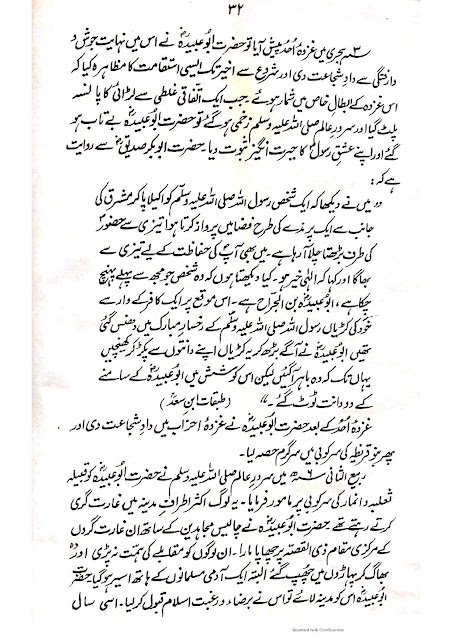 ۳۲
۳ ہجری میں غزوۂ اُحد پیش آیا تو حضرت ابُو عبیدہؓ نے اس میں نہایت جوش و
وارفتگی سے دادِ شجاعت دی اور شروع سے اخیر تک ایسی استقامت کا مظاہرہ کیا کہ
اس غزوہ کے ابطالِ خاص میں شمار ہوئے۔ جب ایک اتفاقی غلطی سے لڑائی کا پانسہ
پلٹ گیا اور سرورِ عالم صلی اللہ علیہ وسلم زخمی ہو گئے تو حضرت ابُو عبیدہؓ بے تاب ہو
گئے اور اپنے عشقِ رسولؐ کا حیرت انگیز ثبوت دیا۔ حضرت ابُوبکر صدیقؓ سے روایت
ہے کہ:
"میں نے دیکھا کہ ایک شخص رسول اللہ صلی اللہ علیہ وسلّم کو اکیلا پا کر مشرق کی
جانب سے ایک پرندے کی طرح فضا میں پرواز کرتا ہوا تیزی سے حضورؐ
کی طرف بڑھتا چلا آ رہا ہے۔ میں بھی آپؐ کی حفاظت کے لیے تیزی سے
بھاگا اور کہا کہ الٰہی خیر ہو۔ کیا دیکھتا ہوں کہ وہ شخص جو مجھ سے پہلے پہنچ
چکا ہے، ابُو عبیدہؓ بن الجرّاح ہے۔ اس موقع پر ایک کافر کے وار سے
خَود کی کڑیاں رسول اللہ صلی اللہ علیہ وسلّم کے رخسارِ مبارک میں دھنس گئی
تھیں ابُو عبیدہؓ نے آگے بڑھ کر یہ کڑیاں اپنے دانتوں سے پکڑ کر کھینچیں
یہاں تک کہ وہ باہر آ گئیں لیکن اس کوشش میں ابُو عبیدہؓ کے سامنے
کے دو دانت ٹوٹ گئے۔" (طبقات ابن سعدؒ)
غزوۂ اُحد کے بعد حضرت ابُو عبیدہؓ نے غزوۂ احزاب میں دادِ شجاعت دی اور
پھر بنو قریظہ کی سرکوبی میں سرگرم حصہ لیا۔
ربیع الثانی ۶ھ میں سرورِ عالم صلی اللہ علیہ وسلم نے حضرت ابُو عبیدہؓ کو قبیلہ
ثعلبہ و انمار کی سرکوبی پر مامور فرمایا۔ یہ لوگ اکثر اطرافِ مدینہ میں غارت گری
کرتے رہتے تھے۔ حضرت ابُو عبیدہؓ نے چالیس مجاہدین کے ساتھ ان غارت گردوں
کے مرکزی مقام ذی القصّہ پر چھاپا مارا۔ ان لوگوں کو مقابلے کی ہمت نہ پڑی اور وہ
بھاگ کر پہاڑوں میں چھپ گئے البتہ ایک آدمی مسلمانوں کے ہاتھ اسیر ہو گیا حضرت
ابُو عبیدہؓ اس کو مدینہ لائے تو اس نے برضا و رغبت اسلام قبول کر لیا۔ اسی سال
Scanned with CamScanner